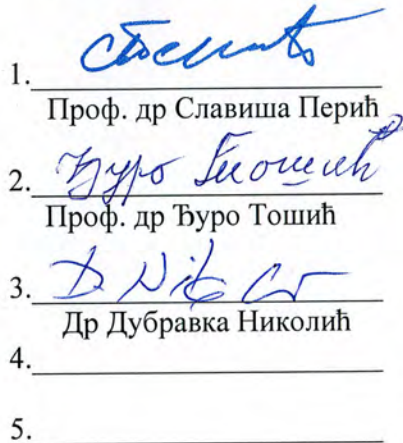 1.
Проф. др Славиша Перић
2. Ђуро Тошић
Проф. др Ђуро Тошић
3.
Др Дубравка Николић
4.
5.